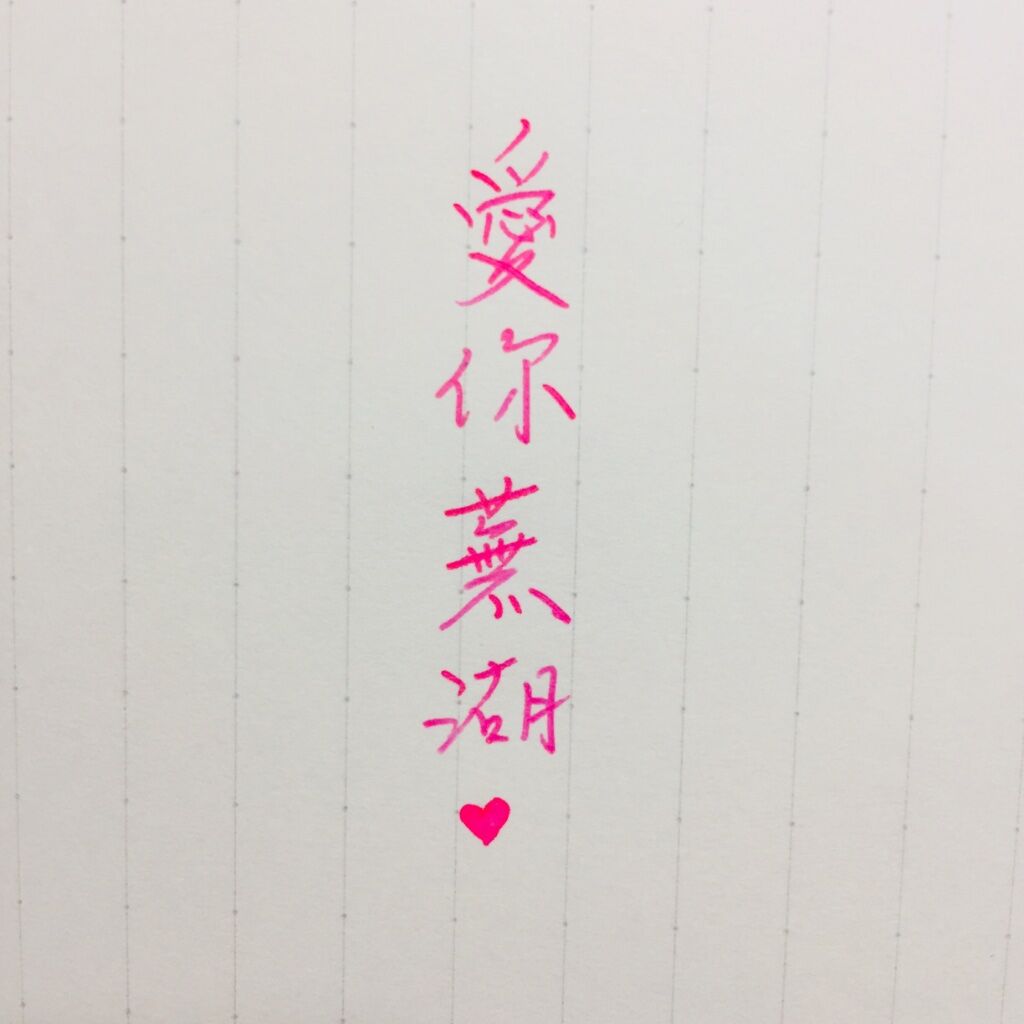 愛你蕪湖♥